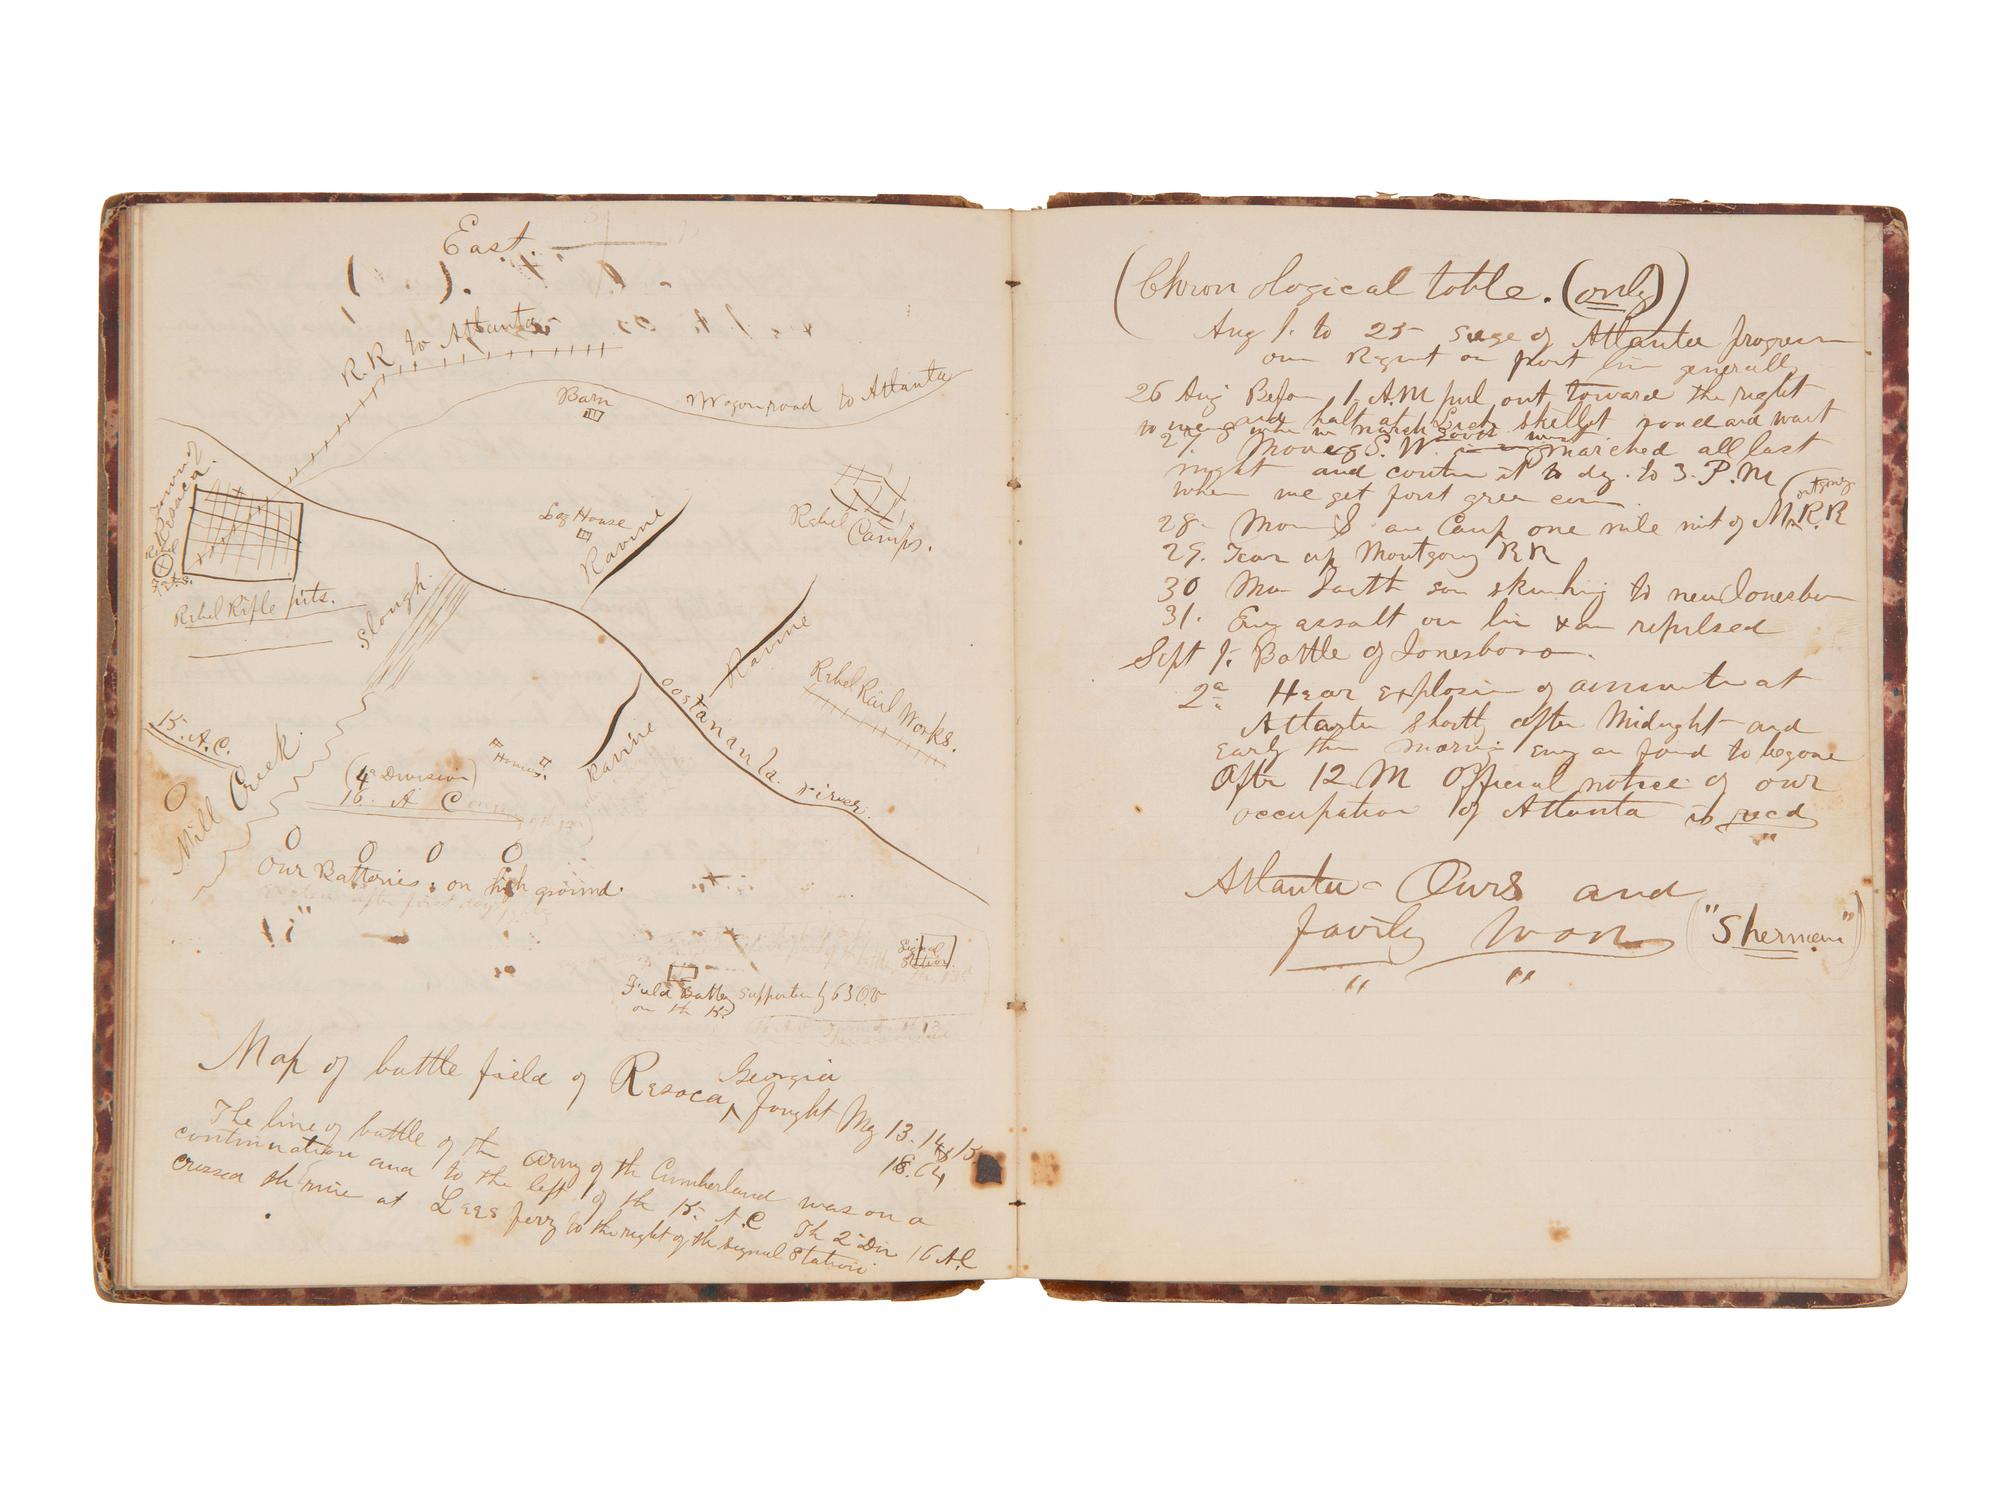 East.
R.R. to Atlanta
Barn
Wagon road to Atlanta
Town of
Resaca.
Rebel
Forts.
Rebel Rifle pits.
Log House
Ravine
Rebel
Camps.
Slough.
Ravine
Rebel Rail Works.
Oostanaula. river.
Ravine
Houses.
15. A.C.
Mill Creek.
(4th Division)
16. A Corps
Our Batteries. on high ground.
Signal
Station
Field Battery supported by 63 O.V
on the 15
Map of battle field of Resaca, Georgia fought May 13. 14 & 15
18.64
The line of battle of the army of the Cumberland was on a
continuation and to the left of the 15. A.C The 2 Div 16 A.C
crossed the river at Lees ferry to the right of the signal station.
(Chronological table. (only))
Aug 1. to 25 seige of Atlanta progress
our Regmt on front line generally
26 Aug Before 1, A.M pul out toward the right
and halt at Lick skillet road and wait
27. Move S. W. marched all last
night and continu it to dy. to 3. P.M
when we get first green corn
28 Mov S an Camp one mile nort of Montgomry R.R
29. Tear up Montgomy RR
30 Mov South som skirmshing to near Jonesboro
31. Eny assalt our lin & are repulsed
Sept 1. Battle of Jonesboro.
2d Hear explosion of ammunition at
Atlanta shortly after Midnight and
early this morning eny are found to be gone
After 12 M Official notice of our
occupation of Atlanta is recd
"
Atlanta - Ours and
fairly won ("Sherman")
" "